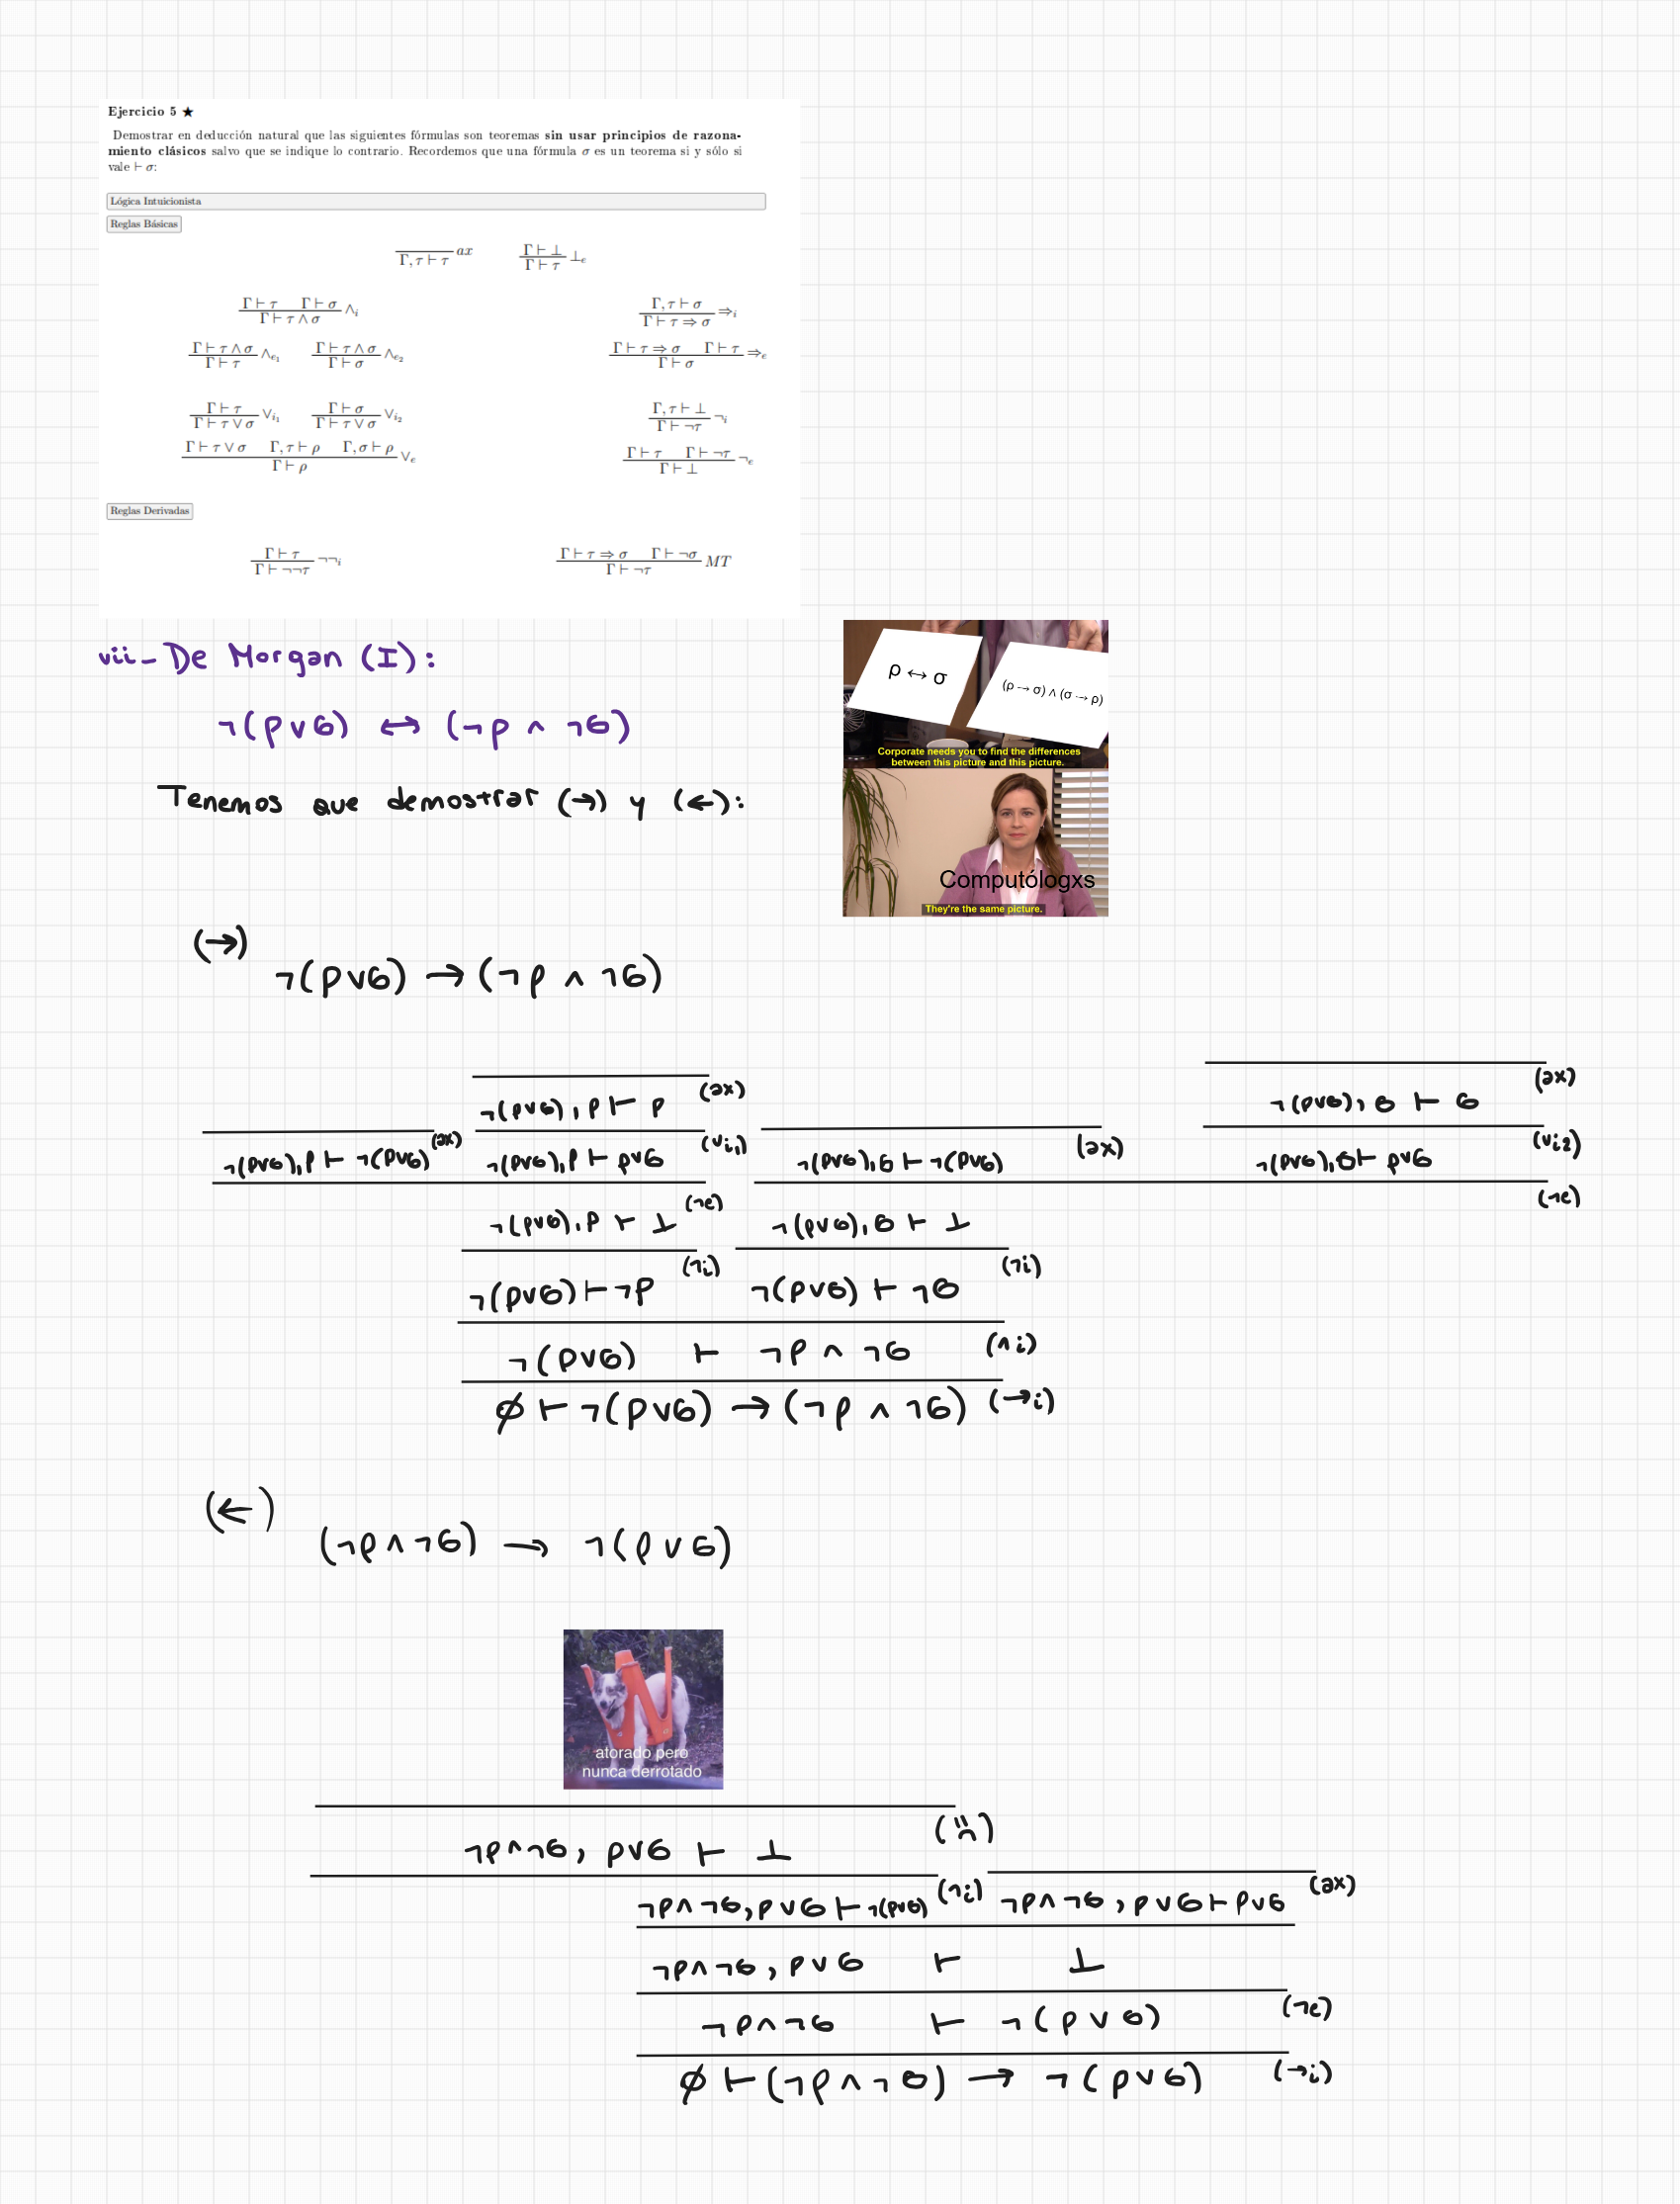 Ejercicio 5 ★
Demostrar en deducción natural que las siguientes fórmulas son teoremas sin usar principios de razona-
miento clásicos salvo que se indique lo contrario. Recordemos que una fórmula σ es un teorema si y sólo si
vale ⊢ σ:
Lógica Intuicionista
Reglas Básicas
Γ, τ ⊢ τ ax
Γ ⊢ ⊥
Γ ⊢ τ ⊥e
Γ ⊢ τ Γ ⊢ σ
Γ ⊢ τ ∧ σ ∧i
Γ, τ ⊢ σ
Γ ⊢ τ ⇒ σ ⇒i
Γ ⊢ τ ∧ σ
Γ ⊢ τ ∧e1
Γ ⊢ τ ∧ σ
Γ ⊢ σ ∧e2
Γ ⊢ τ ⇒ σ Γ ⊢ τ
Γ ⊢ σ ⇒e
Γ ⊢ τ
Γ ⊢ τ ∨ σ ∨i1
Γ ⊢ σ
Γ ⊢ τ ∨ σ ∨i2
Γ, τ ⊢ ⊥
Γ ⊢ ¬τ ¬i
Γ ⊢ τ ∨ σ Γ, τ ⊢ ρ Γ, σ ⊢ ρ
Γ ⊢ ρ ∨e
Γ ⊢ τ Γ ⊢ ¬τ
Γ ⊢ ⊥ ¬e
Reglas Derivadas
Γ ⊢ τ
Γ ⊢ ¬¬τ ¬¬i
Γ ⊢ τ ⇒ σ Γ ⊢ ¬σ
Γ ⊢ ¬τ MT
vii- De Morgan (I):
¬(ρ∨σ) ↔ (¬ρ ∧ ¬σ)
Tenemos que demostrar (→) y (←):
ρ ↔ σ
(ρ → σ) ∧ (σ → ρ)
Corporate needs you to find the differences
between this picture and this picture.
Computólogxs
They're the same picture.
(→)
¬(ρ∨σ) → (¬ρ ∧ ¬σ)
¬(ρ∨σ), ρ ⊢ ρ (ax)
¬(ρ∨σ), σ ⊢ σ (ax)
¬(ρ∨σ), ρ ⊢ ¬(ρ∨σ) (ax)
¬(ρ∨σ), ρ ⊢ ρ∨σ (∨i1)
¬(ρ∨σ), σ ⊢ ¬(ρ∨σ) (ax)
¬(ρ∨σ), σ ⊢ ρ∨σ (∨i2)
¬(ρ∨σ), ρ ⊢ ⊥ (¬e)
¬(ρ∨σ), σ ⊢ ⊥ (¬e)
¬(ρ∨σ) ⊢ ¬ρ (¬i)
¬(ρ∨σ) ⊢ ¬σ (¬i)
¬(ρ∨σ) ⊢ ¬ρ ∧ ¬σ (∧i)
∅ ⊢ ¬(ρ∨σ) → (¬ρ ∧ ¬σ) (→i)
(←)
(¬ρ∧¬σ) → ¬(ρ∨σ)
atorado pero
nunca derrotado
¬ρ∧¬σ, ρ∨σ ⊢ ⊥
¬ρ∧¬σ, ρ∨σ ⊢ ¬(ρ∨σ) (¬i)
¬ρ∧¬σ, ρ∨σ ⊢ ρ∨σ (ax)
¬ρ∧¬σ, ρ∨σ ⊢ ⊥
¬ρ∧¬σ ⊢ ¬(ρ∨σ) (¬e)
∅ ⊢ (¬ρ∧¬σ) → ¬(ρ∨σ) (→i)